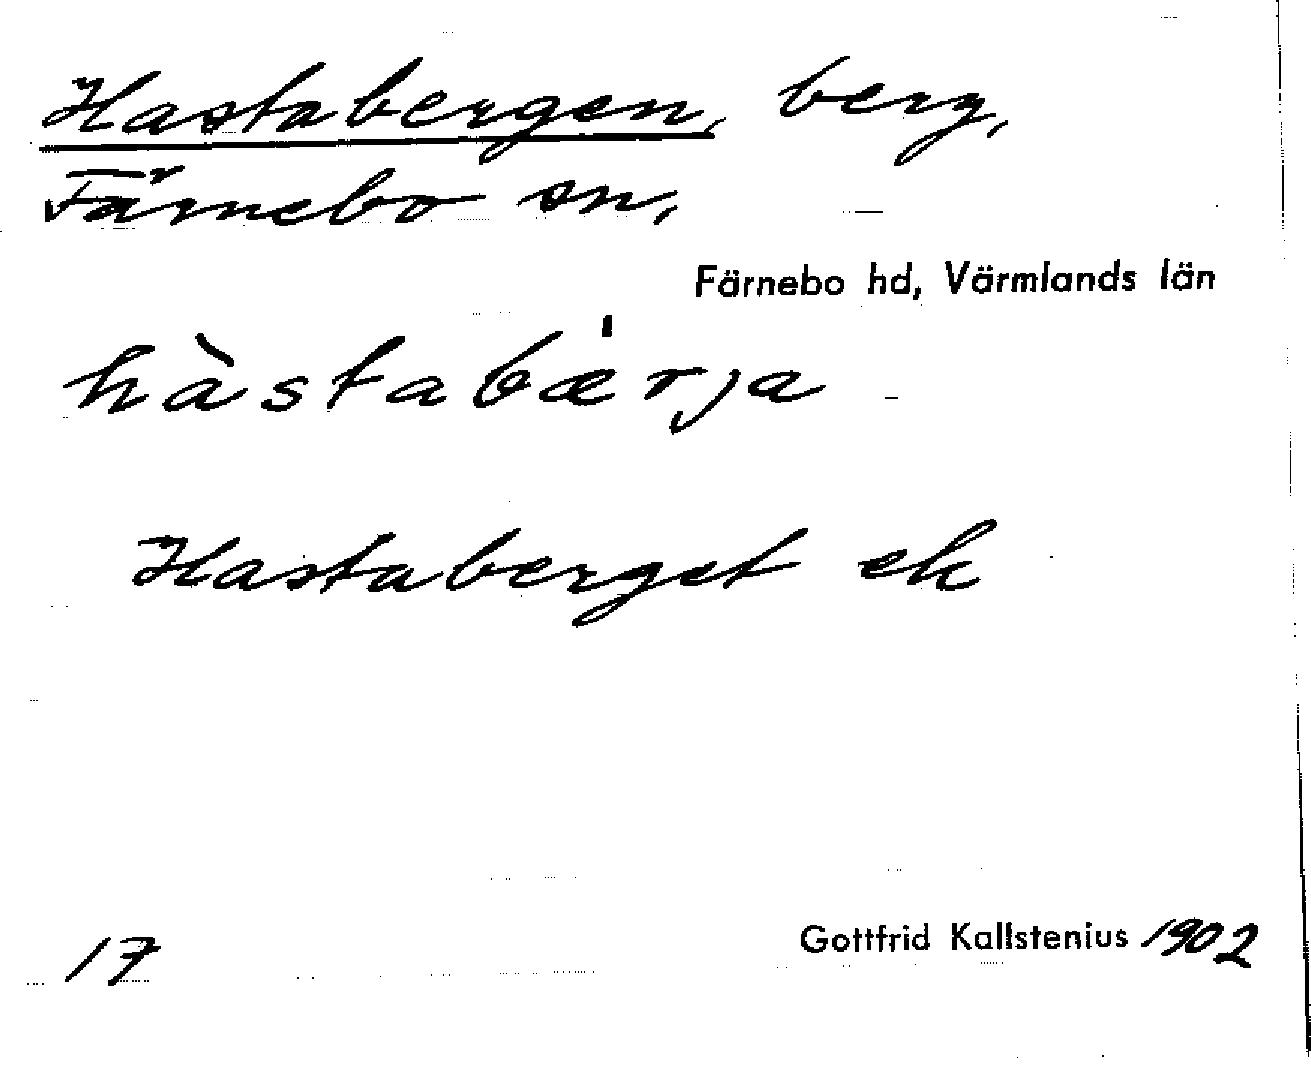 Hastabergen, berg,
Färnebo sn,
Färnebo hd, Värmlands län
hàstabæ̍rja
Hastaberget ek
17
Gottfrid Kallstenius 1902